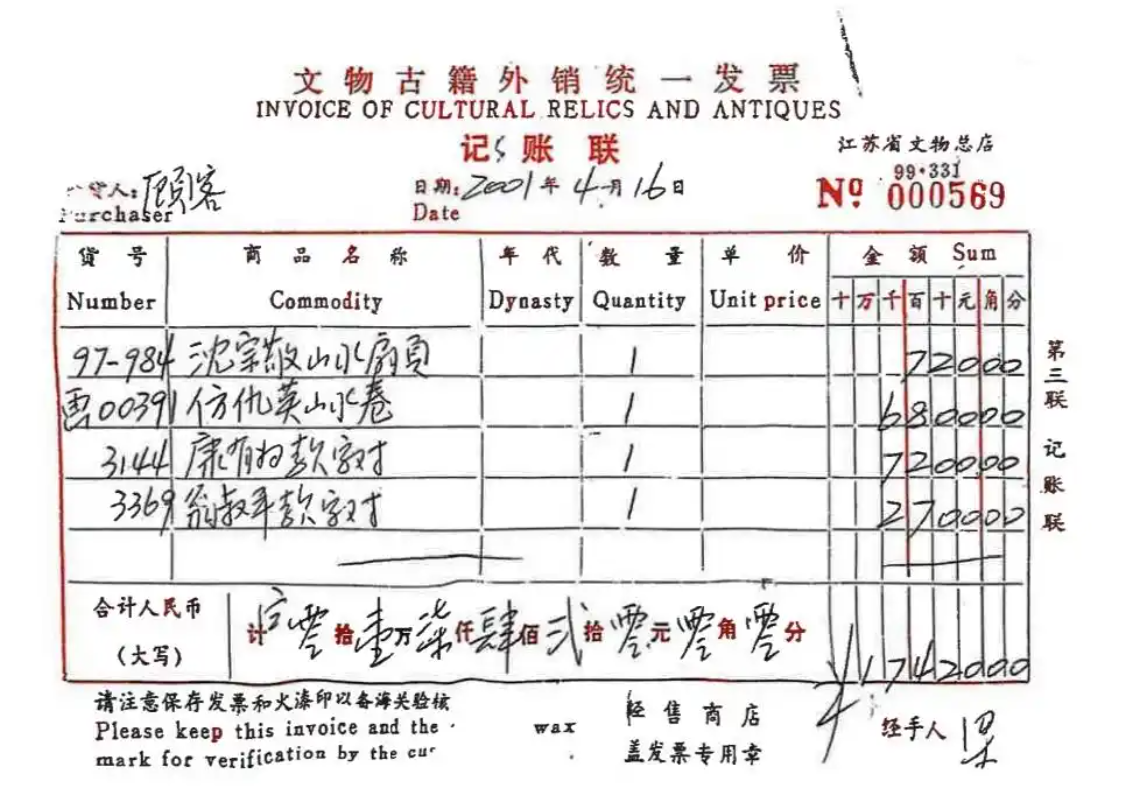 文物古籍外销统一发票
INVOICE OF CULTURAL RELICS AND ANTIQUES
记账联
江苏省文物总店
99·331
Nº 000569
货人: 顧客
Purchaser
日期: 2001年4月16日
Date
货号 商品名称 年代 数量 单价 金额 Sum
Number Commodity Dynasty Quantity Unit price 十万千百十元角分
97-984 沈宗敬山水扇頁 1 72000
画00391 仿仇英山水卷 1 680000
3144 康有为款字对 1 720000
3369 翁叔平款字对 1 270000
合计人民币
(大写)
计 零拾壹万柒仟肆佰贰拾零元零角零分
¥1742000
第三联 记账联
请注意保存发票和火漆印以备海关验核
Please keep this invoice and the wax
mark for verification by the
经售商店
盖发票专用章
经手人 梁